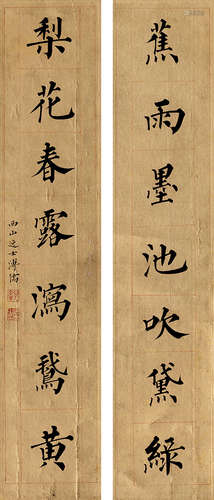 蕉雨墨池吹黛綠
梨花春露瀉鵝黃
西山逸士溥儒